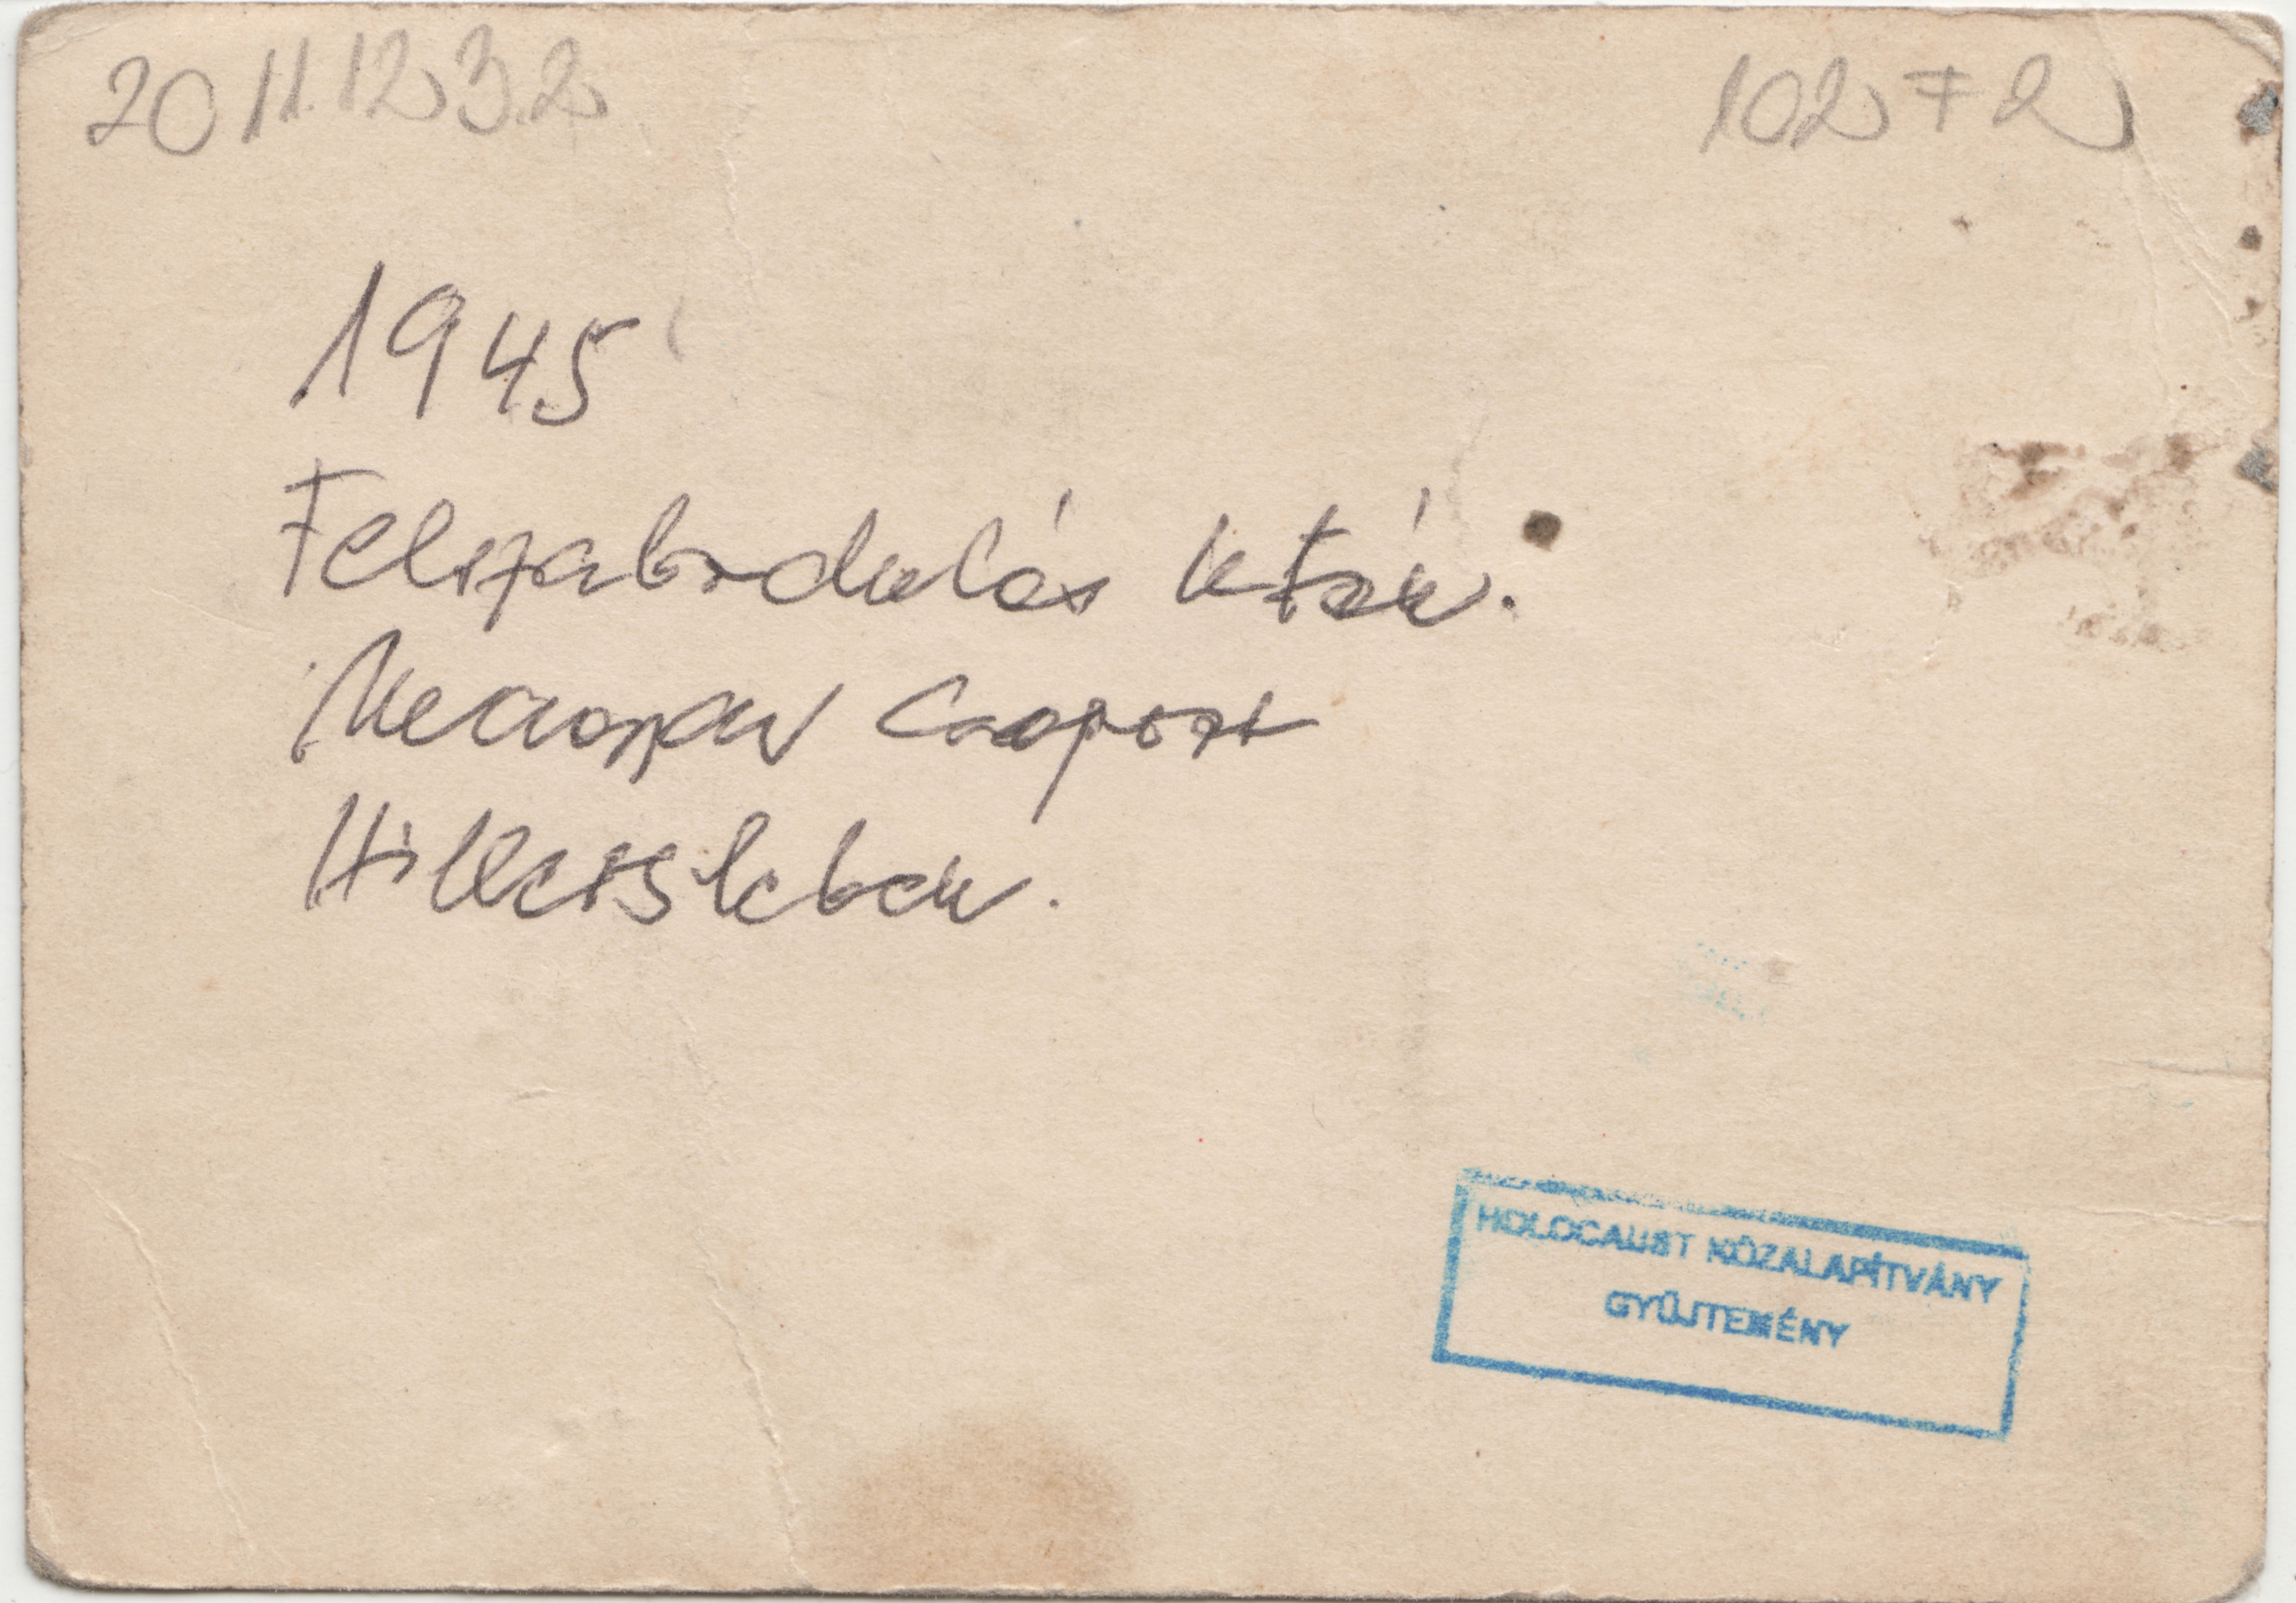 2011.123.2
10272
1945
Felszabadulás után.
Csoport
Hillersleben.
HOLOCAUST KÖZALAPÍTVÁNY
GYŰJTEMÉNY